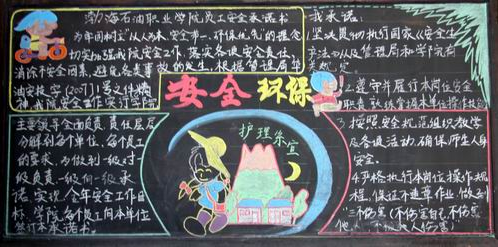 渤海石油职业学院员工安全承诺书
为牢固树立"从人为本,安全第一,环保优先"的理念
切实加强我院安全工作,落实各级安全责任,
消除不安全因素,避免各类事故的发生,根据管理局华
油安技字(2007)1号文件精
神,我院安全工作实行学院
主要领导全面负责,责任层层
分解到各单位、各个员工
的要求,为做到一级对一
级负责,一级向一级承
诺,实现全年安全工作目
标,学院各个员工向本单位
签订本承诺书。
安全 环保
护理朱宣
我承诺:
坚决贯彻执行国家《安全生
产法》以及管理局和学院有关
2、遵守并履行本岗位安全
职责,熟练掌握本单位操作技能
3、按照安全规范组织教学
及各项活动,确保师生人身
安全。
4、严格执行本岗位操作规
程,保证不违章作业,做到
"三不伤害"(不伤害自己,不伤害
他人,不被他人伤害)